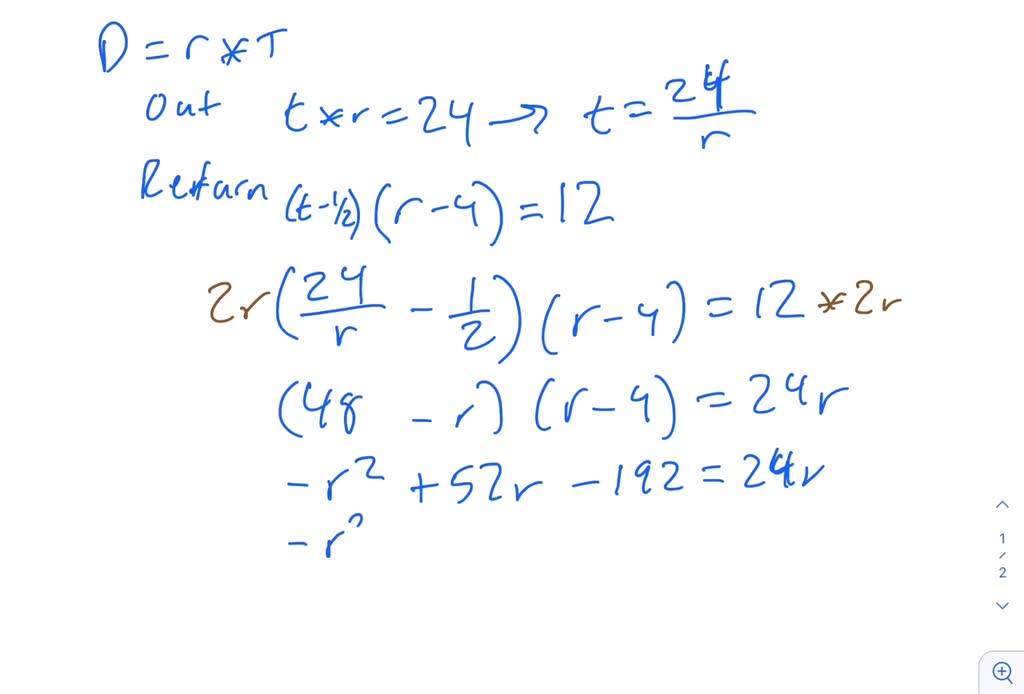 D = r * T
Out t * r = 24 → t = 24/r
Return (t - 1/2)(r - 4) = 12
2r(24/r - 1/2)(r - 4) = 12 * 2r
(48 - r)(r - 4) = 24r
-r² + 52r - 192 = 24r
-r²
1
/
2